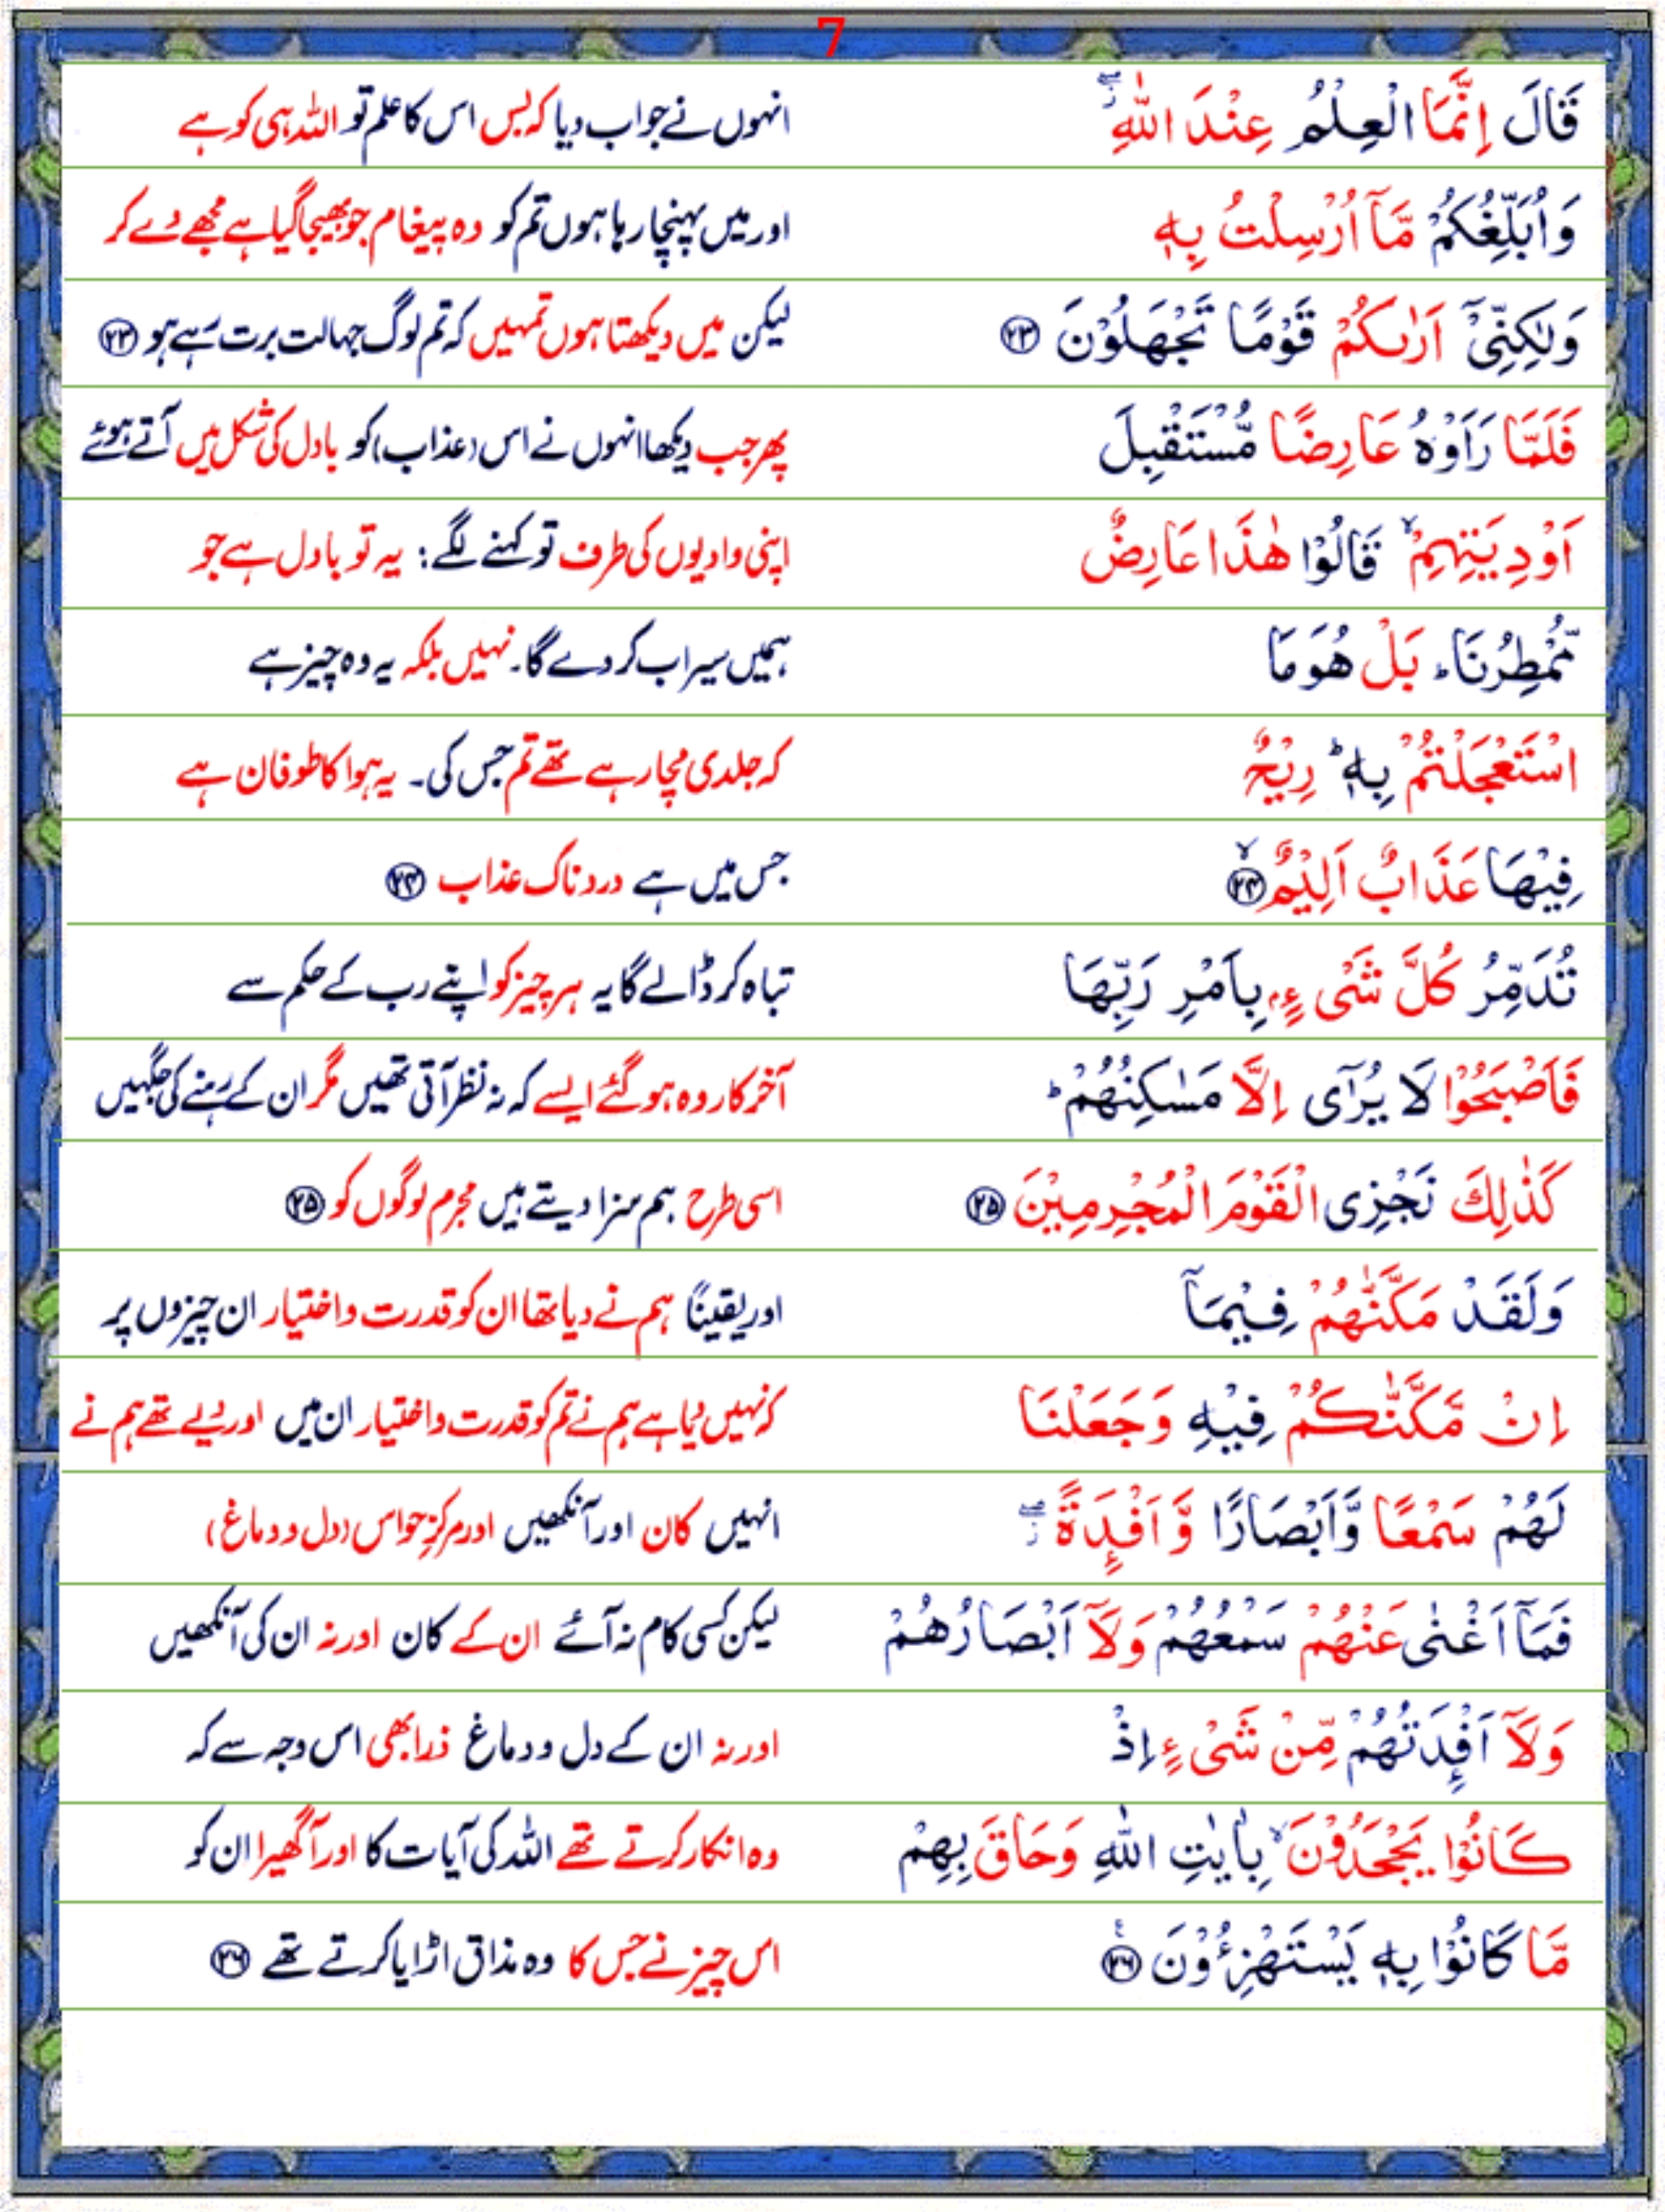 7
قَالَ اِنَّمَا الْعِلْمُ عِنْدَ اللّٰهِ ۖ۫ انہوں نے جواب دیا کہ بس اس کا علم تو اللہ ہی کو ہے
وَاُبَلِّغُكُمْ مَّاۤ اُرْسِلْتُ بِهٖ اور میں پہنچا رہا ہوں تم کو وہ پیغام جو بھیجا گیا ہے مجھے دے کر
وَلٰكِنِّیْۤ اَرٰىكُمْ قَوْمًا تَجْهَلُوْنَ ۝۲۳ لیکن میں دیکھتا ہوں تمہیں کہ تم لوگ جہالت برت رہے ہو ۝۲۳
فَلَمَّا رَاَوْهُ عَارِضًا مُّسْتَقْبِلَ پھر جب دیکھا انہوں نے اس (عذاب) کو بادل کی شکل میں آتے ہوئے
اَوْدِیَتِهِمْ ۙ قَالُوْا هٰذَا عَارِضٌ اپنی وادیوں کی طرف تو کہنے لگے: یہ تو بادل ہے جو
مُّمْطِرُنَا ؕ بَلْ هُوَ مَا ہمیں سیراب کر دے گا۔ نہیں بلکہ یہ وہ چیز ہے
اسْتَعْجَلْتُمْ بِهٖ ؕ رِیْحٌ کہ جلدی مچا رہے تھے تم جس کی۔ یہ ہوا کا طوفان ہے
فِیْهَا عَذَابٌ اَلِیْمٌ ۙ۝۲۴ جس میں ہے دردناک عذاب ۝۲۴
تُدَمِّرُ كُلَّ شَیْءٍۭ بِاَمْرِ رَبِّهَا تباہ کر ڈالے گا یہ ہر چیز کو اپنے رب کے حکم سے
فَاَصْبَحُوْا لَا یُرٰۤی اِلَّا مَسٰكِنُهُمْ ؕ آخر کار وہ ہو گئے ایسے کہ نہ نظر آتی تھیں مگر ان کے رہنے کی جگہیں
كَذٰلِكَ نَجْزِی الْقَوْمَ الْمُجْرِمِیْنَ ۝۲۵ اسی طرح ہم سزا دیتے ہیں مجرم لوگوں کو ۝۲۵
وَلَقَدْ مَكَّنّٰهُمْ فِیْمَاۤ اور یقیناً ہم نے دیا تھا ان کو قدرت و اختیار ان چیزوں پر
اِنْ مَّكَّنّٰكُمْ فِیْهِ وَجَعَلْنَا کہ نہیں دیا ہے ہم نے تم کو قدرت و اختیار ان میں اور دیے تھے ہم نے
لَهُمْ سَمْعًا وَّاَبْصَارًا وَّاَفْـِٕدَةً ۖ۫ انہیں کان اور آنکھیں اور مرکزِ حواس (دل و دماغ)
فَمَاۤ اَغْنٰی عَنْهُمْ سَمْعُهُمْ وَلَاۤ اَبْصَارُهُمْ لیکن کسی کام نہ آئے ان کے کان اور نہ ان کی آنکھیں
وَلَاۤ اَفْـِٕدَتُهُمْ مِّنْ شَیْءٍ اِذْ اور نہ ان کے دل و دماغ ذرا بھی اس وجہ سے کہ
كَانُوْا یَجْحَدُوْنَ ۙ بِاٰیٰتِ اللّٰهِ وَحَاقَ بِهِمْ وہ انکار کرتے تھے اللہ کی آیات کا اور آ گھیرا ان کو
مَّا كَانُوْا بِهٖ یَسْتَهْزِءُوْنَ ۝۲۶ اس چیز نے جس کا وہ مذاق اڑایا کرتے تھے ۝۲۶